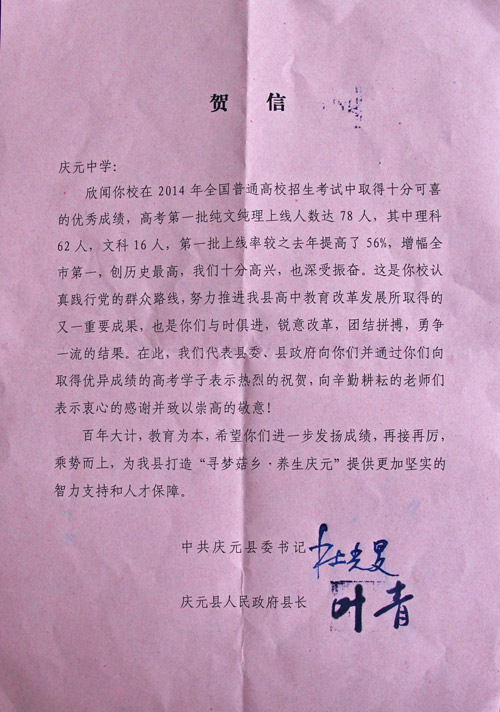 贺 信
庆元中学：
欣闻你校在 2014 年全国普通高校招生考试中取得十分可喜
的优秀成绩，高考第一批纯文纯理上线人数达 78 人，其中理科
62 人，文科 16 人，第一批上线率较之去年提高了 56%，增幅全
市第一，创历史最高，我们十分高兴，也深受振奋。这是你校认
真践行党的群众路线，努力推进我县高中教育改革发展所取得的
又一重要成果，也是你们与时俱进，锐意改革，团结拼搏，勇争
一流的结果。在此，我们代表县委、县政府向你们并通过你们向
取得优异成绩的高考学子表示热烈的祝贺，向辛勤耕耘的老师们
表示衷心的感谢并致以崇高的敬意！
百年大计，教育为本，希望你们进一步发扬成绩，再接再厉，
乘势而上，为我县打造“寻梦菇乡·养生庆元”提供更加坚实的
智力支持和人才保障。
中共庆元县委书记 杜光旻
庆元县人民政府县长 叶青